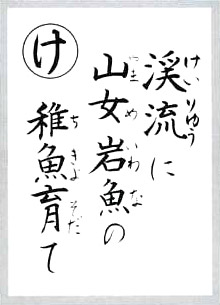 け
渓流に
山女岩魚の
稚魚育て
けいりゅう
やまめいわな
ちぎょそだ